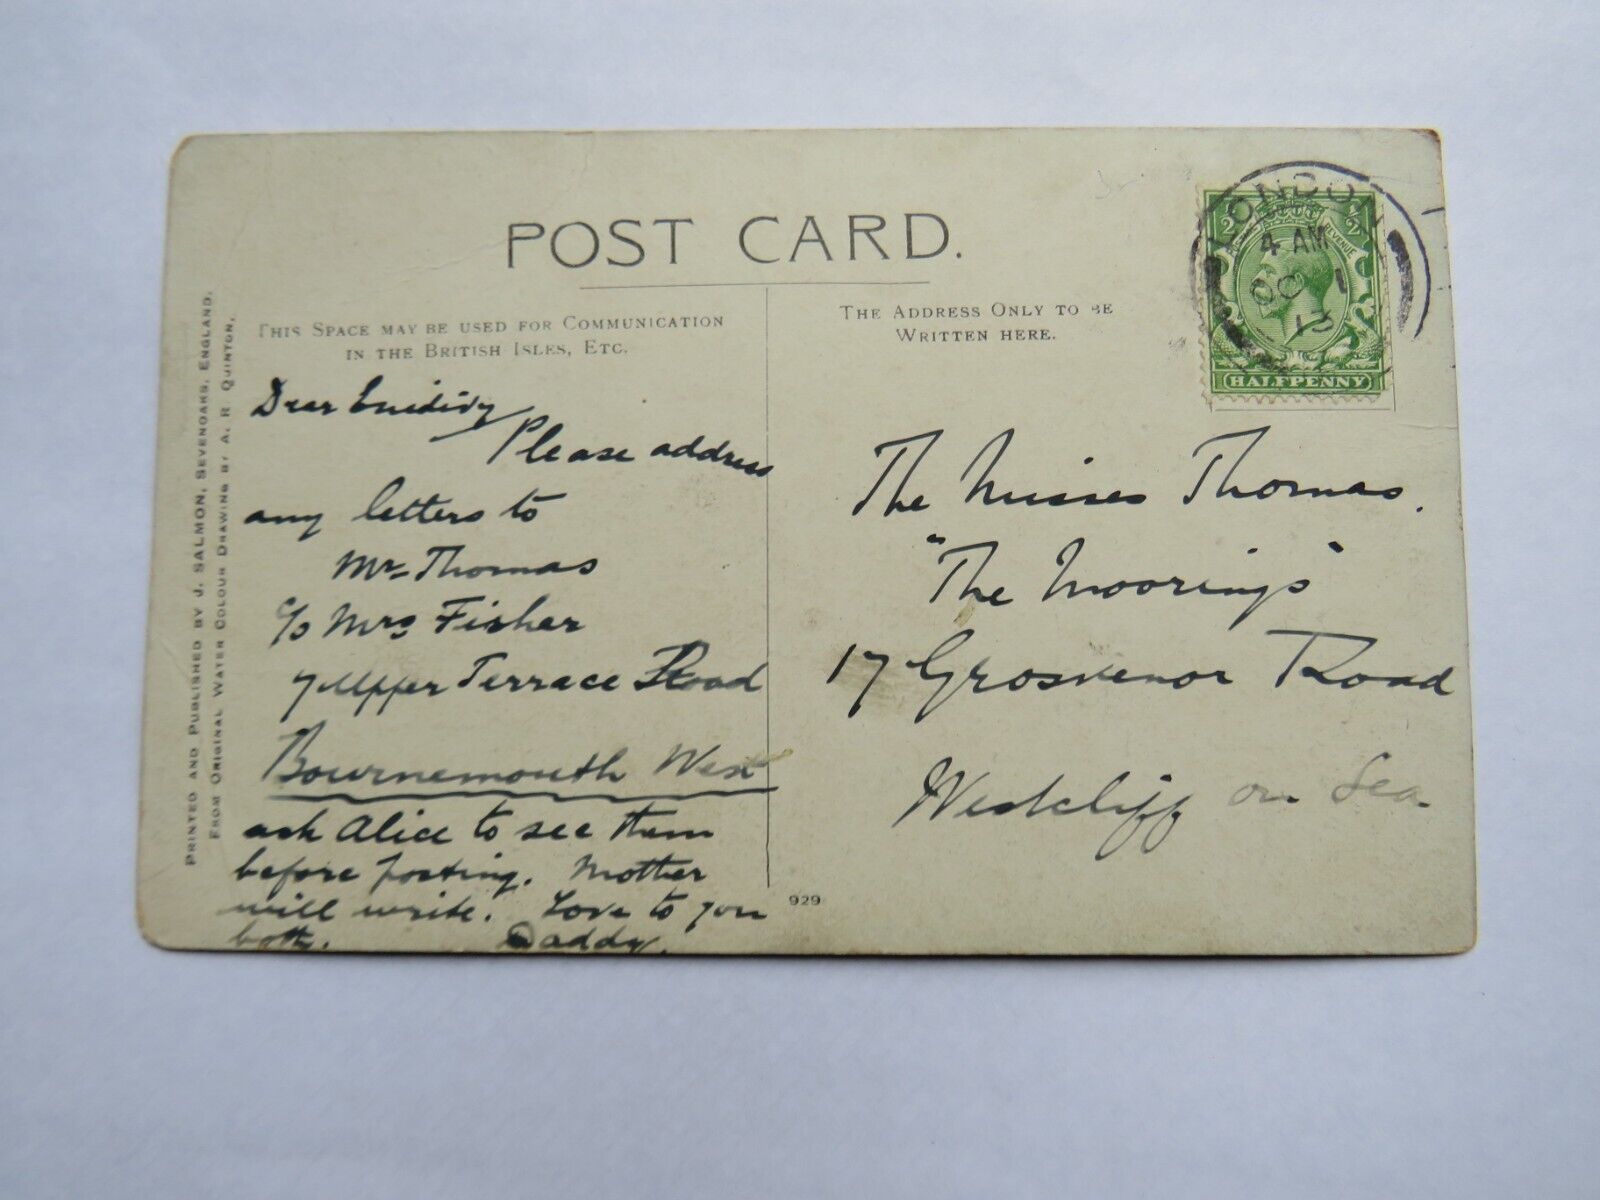 POST CARD.
THIS SPACE MAY BE USED FOR COMMUNICATION
IN THE BRITISH ISLES, ETC.
THE ADDRESS ONLY TO BE
WRITTEN HERE.
LONDON
4 AM
OC 1
HALFPENNY
REVENUE
Dear
Please address
any letters to
Mr Thomas
c/o Mrs Fisher
7 Upper Terrace Road
Bournemouth West
ask Alice to see them
before posting. Mother
will write. Love to you
both. Daddy.
The Misses Thomas.
"The Moorings"
17 Grosvenor Road
Westcliff on Sea
929
PRINTED AND PUBLISHED BY J. SALMON, SEVENOAKS, ENGLAND.
FROM ORIGINAL WATER COLOUR DRAWING BY A. R. QUINTON.